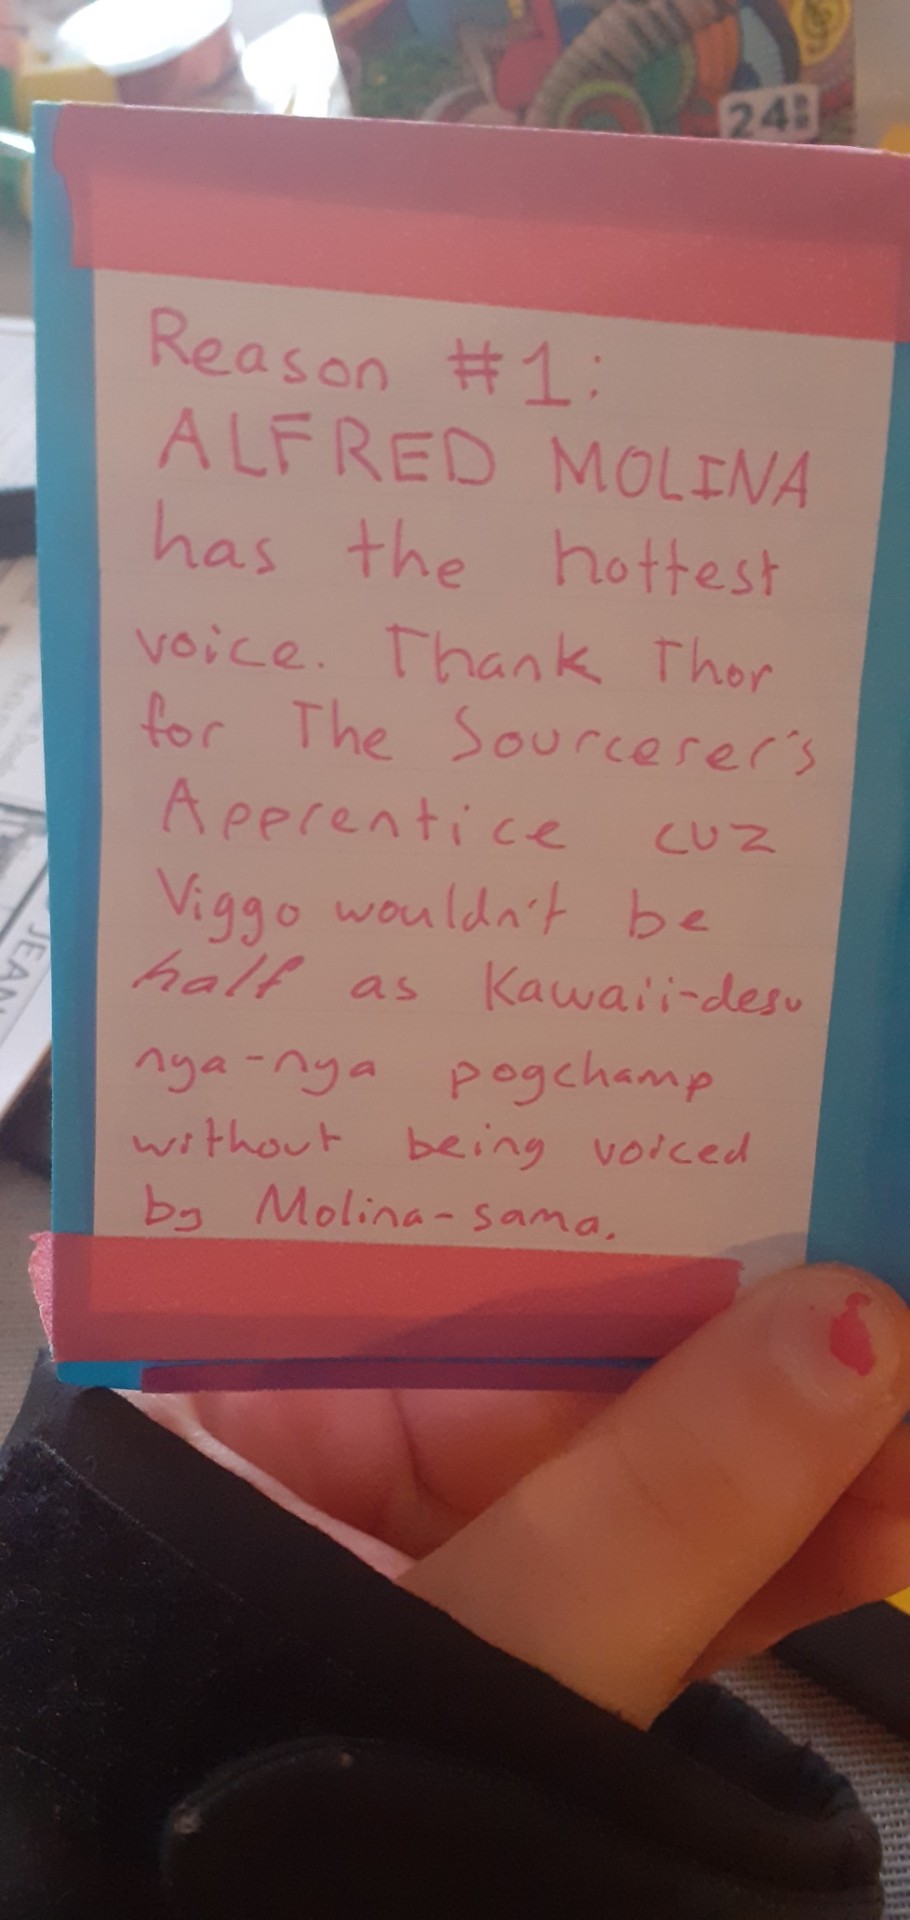 24
Reason #1:
ALFRED MOLINA
has the hottest
voice. Thank Thor
for The Sourcerer's
Apprentice cuz
Viggo wouldn't be
half as Kawaii-desu
nya-nya pogchamp
without being voiced
by Molina-sama.
JEAN